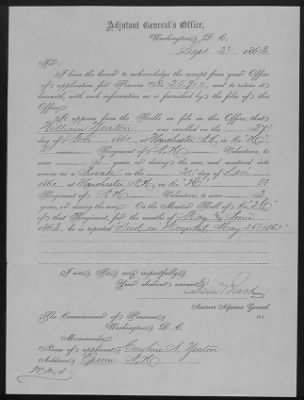 Adjutant General's Office,
Washington, D. C.
Sept 2 1863
Sir:
I have the honor to acknowledge the receipt from your Office
of application for Pension No. 25,912, and to return it
herewith, with such information as is furnished by the files of this
Office.
It appears from the Rolls on file in this Office, that
William Yeaton was enrolled on the 27
day of 186 , at Manchester N.H., in Co. "H"
Regiment of N.H. Volunteers, to
serve 3 years, or during the war, and mustered into
service as a Private on the day of
186 , at Manchester N.H., in Co. "H"
Regiment of N.H. Volunteers, to serve 3
years, or during the war. On the Muster Roll of Co. "H"
of that Regiment, for the months of May & June
186 , he is reported Died in Hospital, May
I am, Sir, very respectfully,
Your obedient servant,
Assistant Adjutant General.
The Commissioner of Pensions,
Washington, D. C.
Memoranda:
Name of applicant, Caroline Yeaton
Address, Epsom N.H.